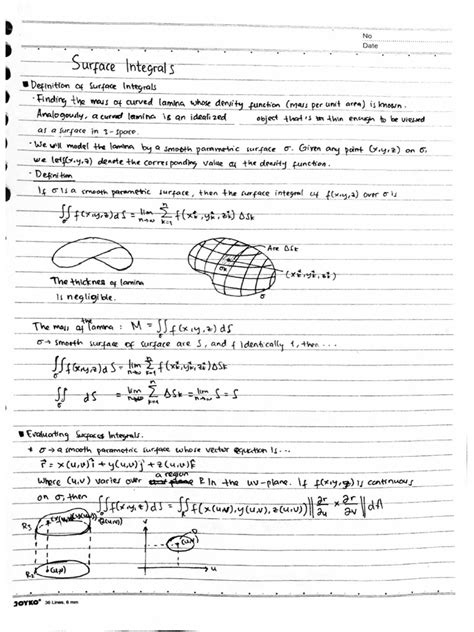 No
Date
Surface Integrals
■ Definition of Surface Integrals
· Finding the mass of curved lamina whose density function (mass per unit area) is known.
Analogously, a curved lamina is an idealized object that's thin enough to be viewed
as a surface in 3-space.
· We will model the lamina by a smooth parametric surface σ. Given any point (x,y,z) on σ,
we let f(x,y,z) denote the corresponding value of the density function.
· Definition
If σ is a smooth parametric surface, then the surface integral of f(x,y,z) over σ is
∬σ f(x,y,z) dS = lim n→∞ Σ k=1 n f(x*k, y*k, z*k) ΔSk
Are ΔSk
σk
(x*k, y*k, z*k)
σ
The thickness of lamina
is negligible.
The mass of the lamina : M = ∬σ f(x,y,z) dS
σ → smooth surface of surface are S, and f identically 1, then ...
∬σ f(x,y,z) dS = lim n→∞ Σ k=1 n f(x*k, y*k, z*k) ΔSk
∬σ dS = lim n→∞ Σ k=1 n ΔSk = lim n→∞ S = S
■ Evaluating Surfaces Integrals.
* σ → a smooth parametric surface whose vector equation is ...
r = x(u,v)i + y(u,v)j + z(u,v)k
where (u,v) varies over a region R in the uv-plane. If f(x,y,z) is continuous
on σ, then ∬σ f(x,y,z) dS = ∬R f(x(u,v), y(u,v), z(u,v)) ‖∂r/∂u × ∂r/∂v‖ dA
v
R
(u,v)
u
JOYKO 36 Lines, 8 mm